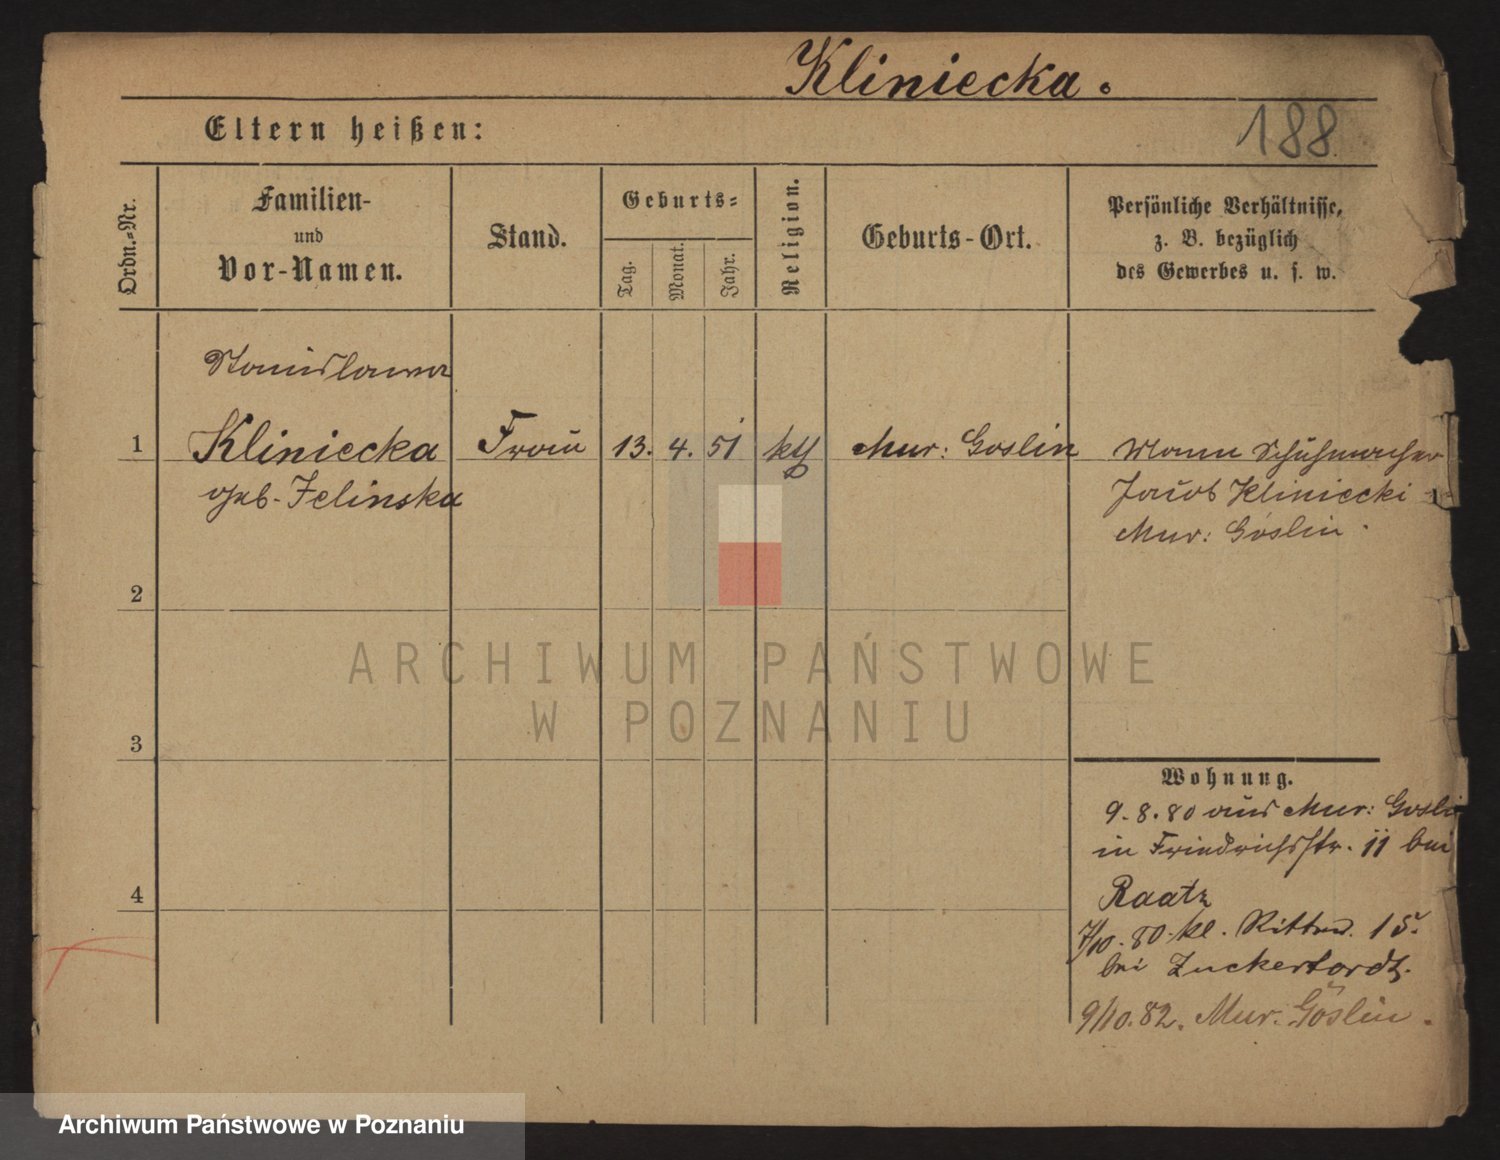 Kliniecka.
188
Eltern heißen:
Ordn.=Nr.
Familien-
und
Vor-Namen.
Stand.
Geburts=
Tag.
Monat.
Jahr.
Religion.
Geburts-Ort.
Persönliche Verhältnisse,
z. B. bezüglich
des Gewerbes u. s. w.
Stanislawa
1 Kliniecka Frau 13. 4. 51 kth Mur: Goslin Mann Schuhmacher
geb. Zelinska Jacob Kliniecki
Mur: Goslin.
2
3
4
ARCHIWUM PAŃSTWOWE
W POZNANIU
Wohnung.
9.8.80 aus Mur: Goslin
in Friedrichsstr. 11 bei
Raatz
7/10.80. kl. Ritters. 15.
bei Zuckertordt.
9/10.82. Mur. Goslin.
Archiwum Państwowe w Poznaniu